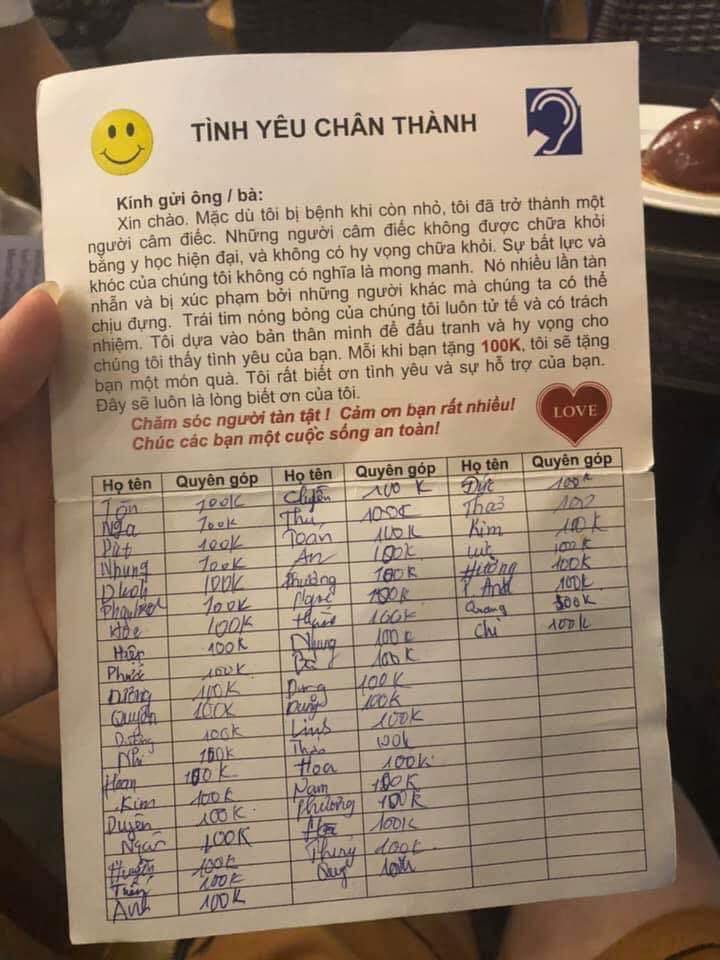 TÌNH YÊU CHÂN THÀNH
Kính gửi ông / bà:
Xin chào. Mặc dù tôi bị bệnh khi còn nhỏ, tôi đã trở thành một
người câm điếc. Những người câm điếc không được chữa khỏi
bằng y học hiện đại, và không có hy vọng chữa khỏi. Sự bất lực và
khóc của chúng tôi không có nghĩa là mong manh. Nó nhiều lần tàn
nhẫn và bị xúc phạm bởi những người khác mà chúng ta có thể
chịu đựng. Trái tim nóng bỏng của chúng tôi luôn tử tế và có trách
nhiệm. Tôi dựa vào bản thân mình để đấu tranh và hy vọng cho
chúng tôi thấy tình yêu của bạn. Mỗi khi bạn tặng 100K, tôi sẽ tặng
bạn một món quà. Tôi rất biết ơn tình yêu và sự hỗ trợ của bạn.
Đây sẽ luôn là lòng biết ơn của tôi.
Chăm sóc người tàn tật ! Cảm ơn bạn rất nhiều!
Chúc các bạn một cuộc sống an toàn!
LOVE
Họ tên Quyên góp Họ tên Quyên góp Họ tên Quyên góp
100K 100K Đức 100K
Nga 100K Thu 100K Thảo 100
100K Toán 100K Kim 100K
Nhung 100K An 100K 100K
100K Phương 100K Hường 100K
100K 100K Anh 100K
Hòe 100K 100K Quang 500K
Hiệp 100K Nhung 100K Chi 100K
Phước 100K 100K
Dương 100K 100K
Quyên 100K Dung 100K
100K Linh 100K
Nhi 100K Thảo 100k
Hoan 100K Hoa 100K
Kim 100K Nam 100K
Duyên 100K Phương 100K
Ngân 100K 100K
Huyền 100K Thủy 100K
100K Quý
Anh 100K